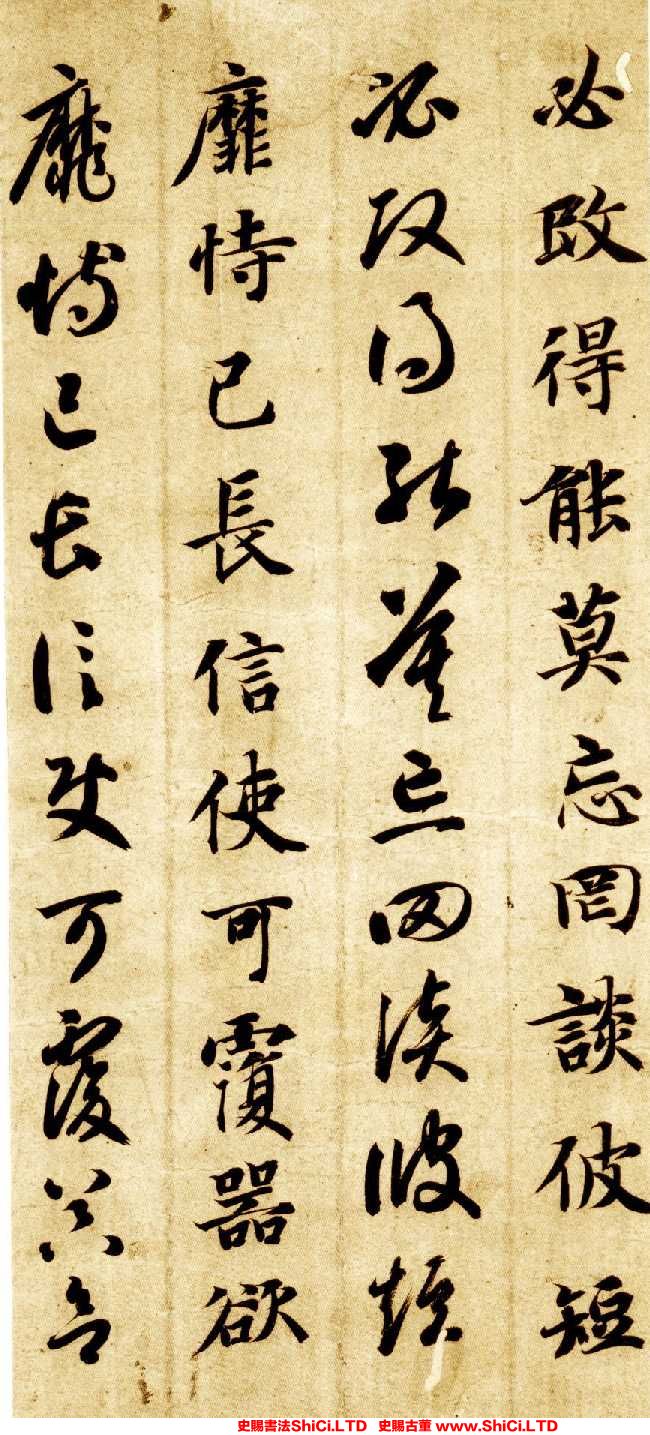 必改得能莫忘罔談彼短
必改得能莫忘罔談彼短
靡恃己長信使可覆器欲
靡恃己長信使可覆器欲
史賜書法ShiCi.LTD 史賜古董 www.ShiCi.LTD